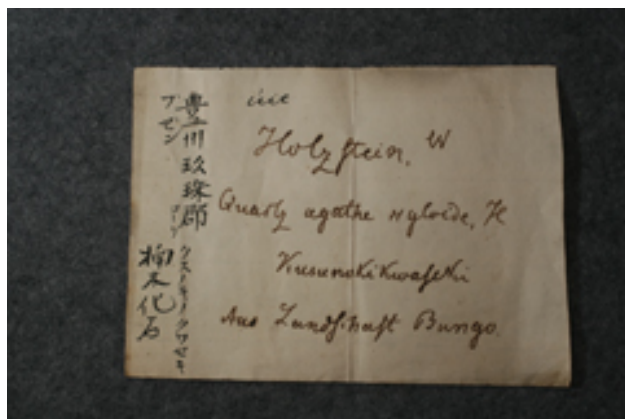 豊州玖珠郡
ブゼン
クスノキノクワセキ
楠木化石
Holzstein, W
Quarz agathe xyloïde, H
Kusunoki Kwaseki
Aus Landschaft Bungo.